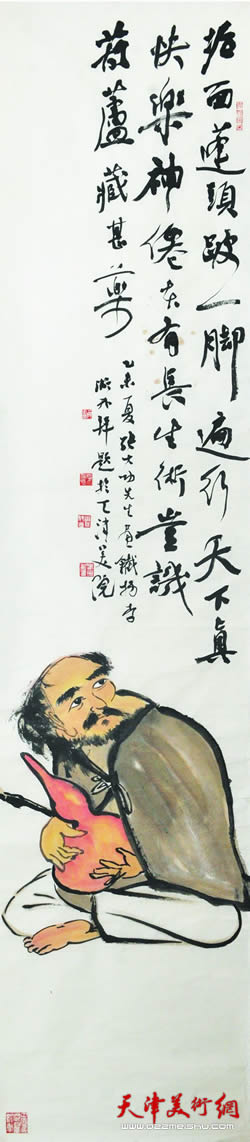 垢面蓬頭跛一脚遍行天下真
快樂神僊本有長生術豈識
葫蘆藏甚藥
乙未夏張大功先生畫鐵拐李
題於天津美院
天津美術網
www.022meishu.com